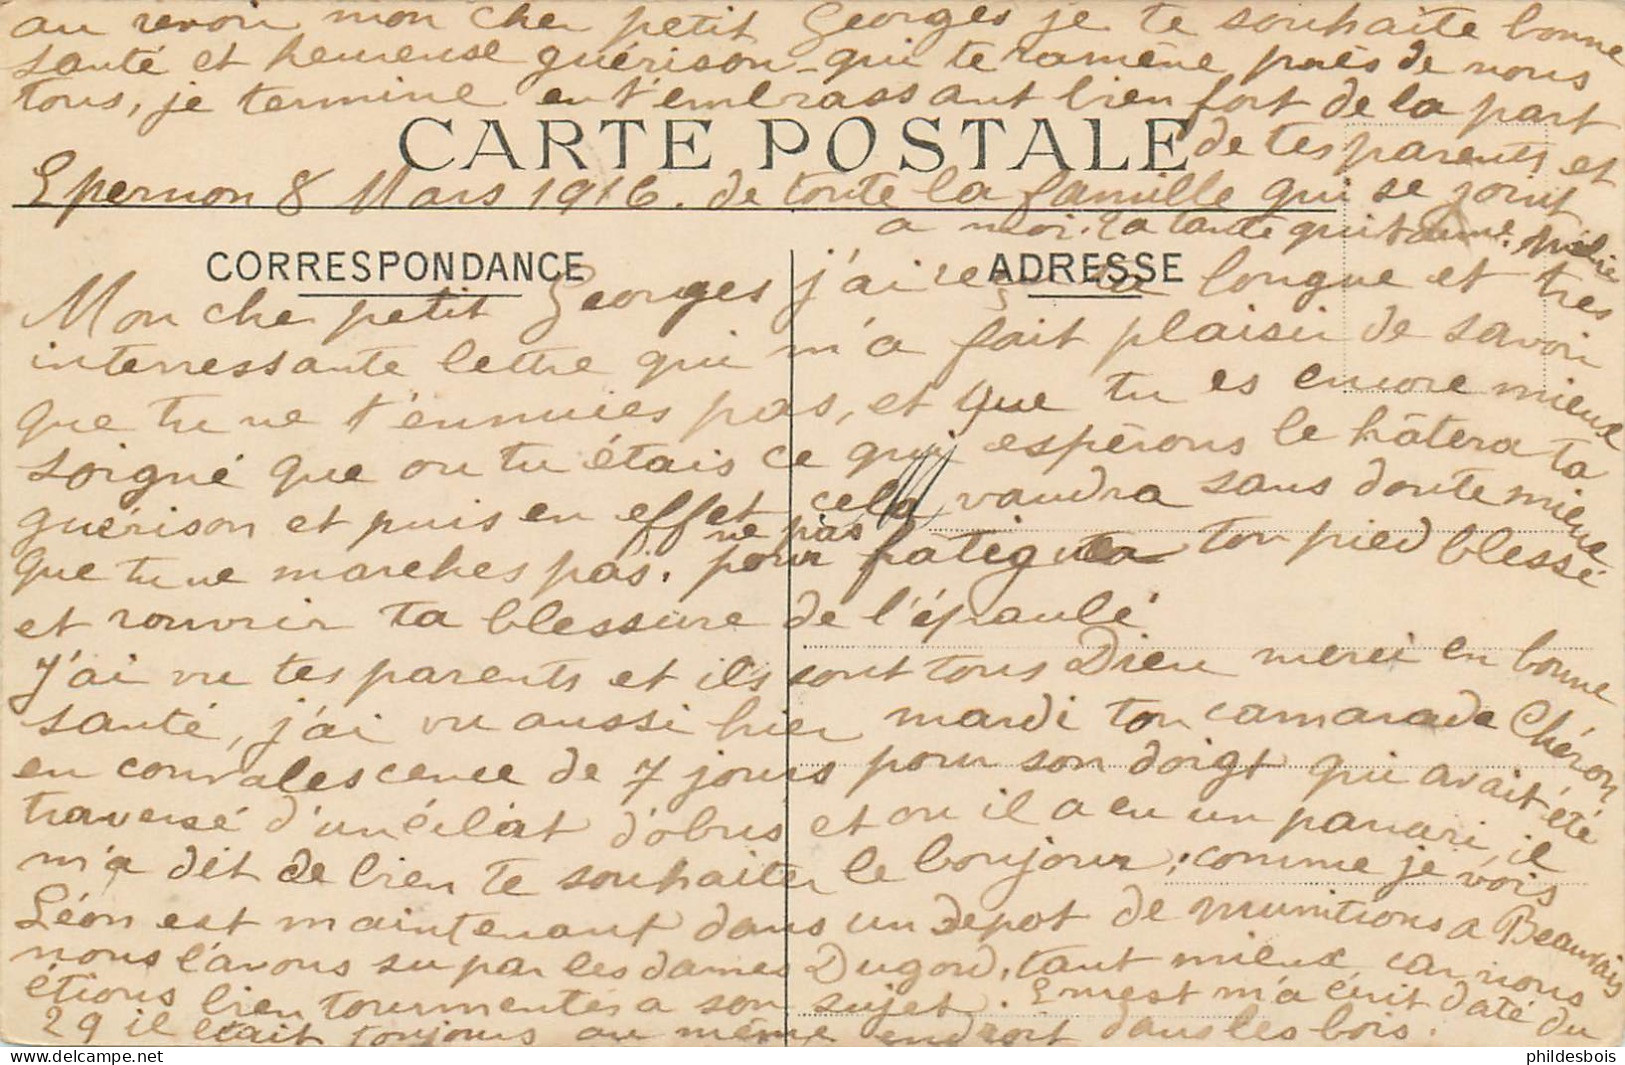 au revoir mon cher petit Georges je te souhaite bonne
santé et heureuse guérison qui te ramène près de nous
tous, je termine en t'embrassant bien fort de la part
CARTE POSTALE
de tes parents et
Epernon 8 Mars 1916. de toute la famille qui se joint
a moi. ta tante qui t'aime.
CORRESPONDANCE
ADRESSE
Mon cher petit Georges j'ai reçu ta longue et tres
interressante lettre qui m'a fait plaisir de savoir
que tu ne t'ennuies pas, et que tu es encore mieux
soigné que ou tu étais ce qui espérons le hâtera ta
guérison et puis en effet cela vaudra sans doute mieux
que tu ne marches pas. pour ne pas fatiguer ton pied blessé
et rouvrir ta blessure de l'épaule
J'ai vu tes parents et ils sont tous Dieu merci en bonne
santé, j'ai vu aussi hier mardi ton camarade Chéron
en convalescence de 7 jours pour son doigt qui avait été
traversé d'un éclat d'obus et ou il a eu un panari, il
m'a dit de bien te souhaiter le bonjour; comme je vois
Léon est maintenant dans un depot de munitions a Beauvais
nous l'avons su par les dames Dugord, tant mieux car nous
étions bien tourmentés a son sujet. Ernest m'a écrit daté du
29 il était toujours au même endroit dans les bois.
phildesbois